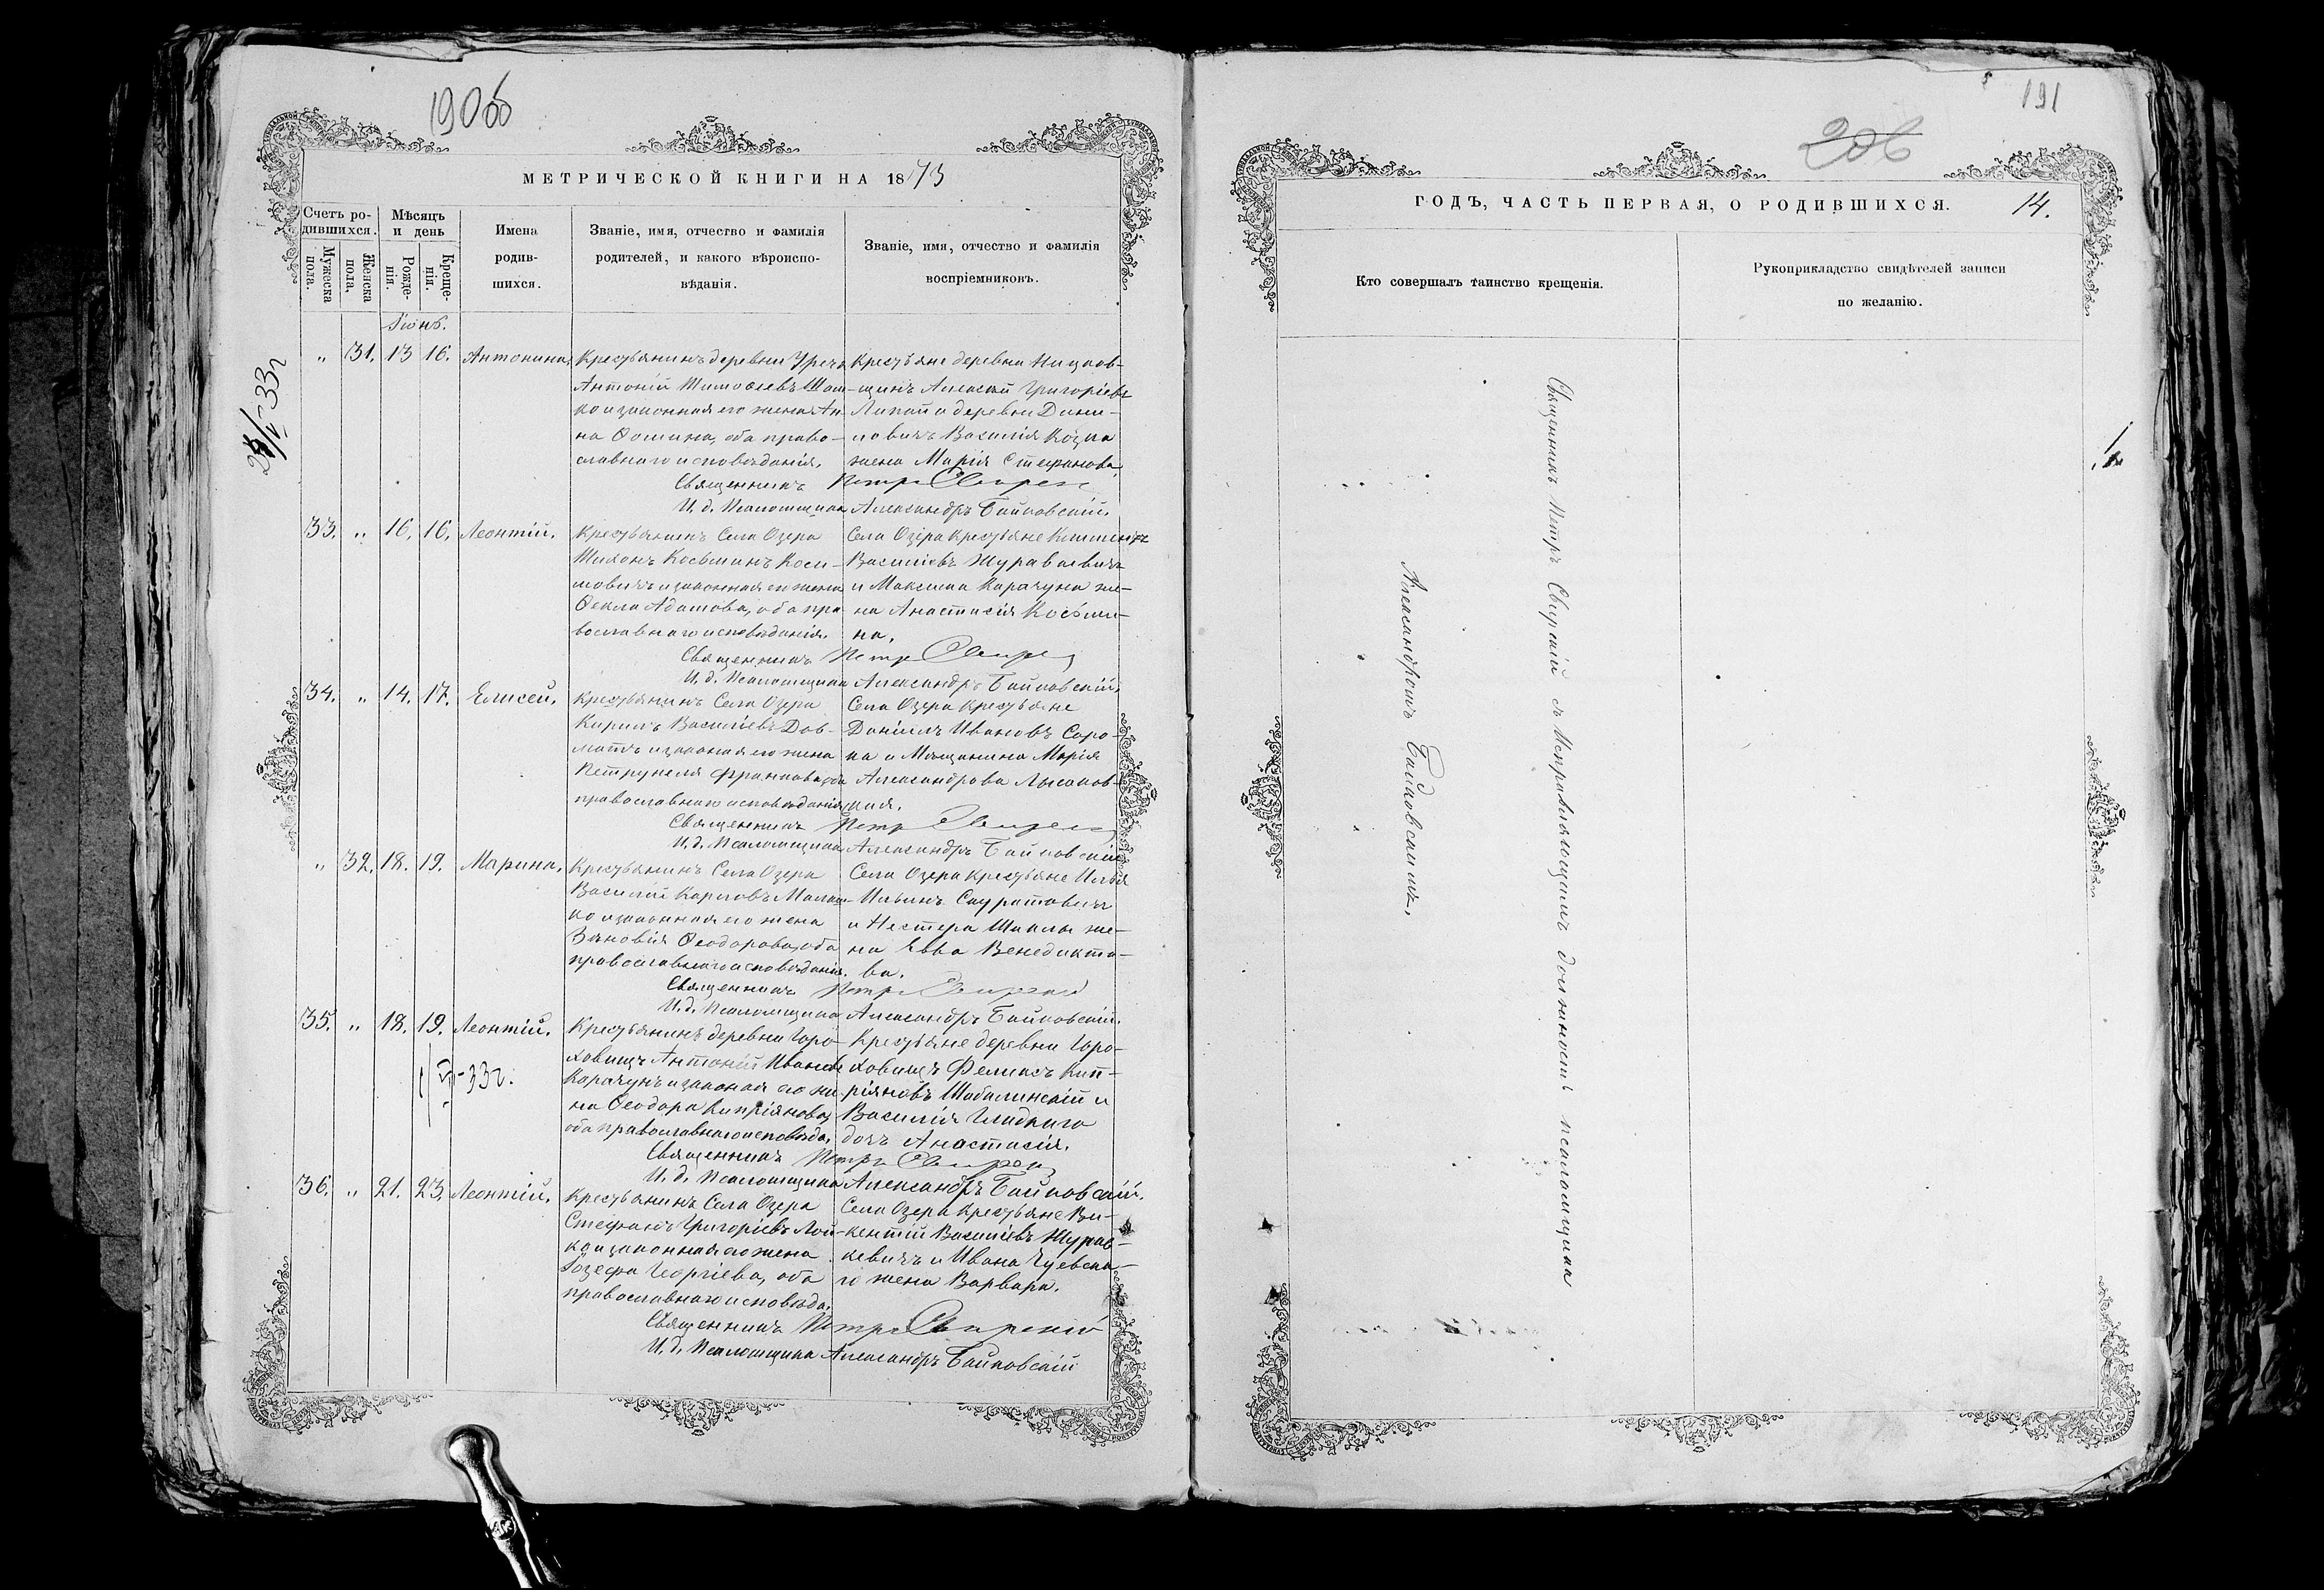 190об
МЕТРИЧЕСКОЙ КНИГИ НА 1873
Счетъ ро-
дившихся.
Мужеска
пола.
Женска
пола.
Мѣсяцъ
и день
Рожде-
нія.
Креще-
нія.
Имена
родив-
шихся.
Званіе, имя, отчество и фамилія
родителей, и какого вѣроиспо-
вѣданія.
Званіе, имя, отчество и фамилія
воспріемниковъ.
Іюнь.
" 31. 13 16. Антонина,
Крестьянинъ деревни Уреча
Антоній Тимоѳеевъ
ко и законная его жена Ан-
на Ѳомина, оба право-
славнаго исповѣданія.
Крестьяне деревни
Алексѣй Григоріевъ
и деревни
Василія Козла
жена Марія Стефанова
Священникъ Петръ Свирскій
И. д. Псаломщика Александръ Байковскій.
33. " 16. 16. Леонтій.
Крестьянинъ Села Озера
Косьминъ Коси-
мовичъ и законная его жена
Ѳекла Адамова, оба пра-
вославнаго исповѣданія.
Села Озера крестьяне Климентъ
Василіевъ Журавкевичъ
и Максима Карачуна же-
на Анастасія Косьми-
на.
Священникъ Петръ Свирскій
И. д. Псаломщика Александръ Байковскій.
34. " 14. 17. Елисей.
Крестьянинъ Села Озера
Кирилъ Василіевъ Дов-
и законная его жена
Петрунеля Францова, оба
православнаго исповѣданія
Села Озера крестьяне
Даніилъ Ивановъ Соро-
ка и Мѣщанина Марія
Александрова Лысаков-
ская.
Священникъ Петръ Свирскій
И. д. Псаломщика Александръ Байковскій
" 32. 18. 19. Марина.
Крестьянинъ Села Озера
Василій Карповъ
ко и законная его жена
Зѣновія Ѳеодорова, оба
православнаго исповѣданія.
Села Озера крестьяне Илья
Ильинъ Скуратовичъ
и Нестера Шкляр же-
на Евва Венедикто-
ва.
Священникъ Петръ Свирскій
И. д. Псаломщика Александръ Байковскій.
35. " 18. 19. Леонтій.
Крестьянинъ деревни Горо-
ховищъ Антоній Ивановъ
Карачунъ и законная его же-
на Ѳеодора Кипріянова,
оба православнаго исповѣда.
Крестьяне деревни Горо-
ховищъ Феликсъ Кип-
ріяновъ Шабалинскій и
Василія Гладкаго
дочь Анастасія.
Священникъ Петръ Свирскій
И. д. Псаломщика Александръ Байковскій.
36. " 21. 23. Леонтій.
Крестьянинъ Села Озера
Стефанъ Григоріевъ Лой-
ко и законная его жена
Іозефа Георгіева, оба
православнаго исповѣда.
Села Озера крестьяне Ви-
кентій Василіевъ Журав-
кевичъ и Ивана
го жена Варвара.
Священникъ Петръ Свирскій
И. д. Псаломщика Александръ Байковскій
191
206
ГОДЪ, ЧАСТЬ ПЕРВАЯ, О РОДИВШИХСЯ.
14.
Кто совершалъ таинство крещенія.
Рукоприкладство свидѣтелей записи
по желанію.
Священникъ Петръ Свирскій съ Исправляющимъ должность псаломщика
Александромъ Байковскимъ.